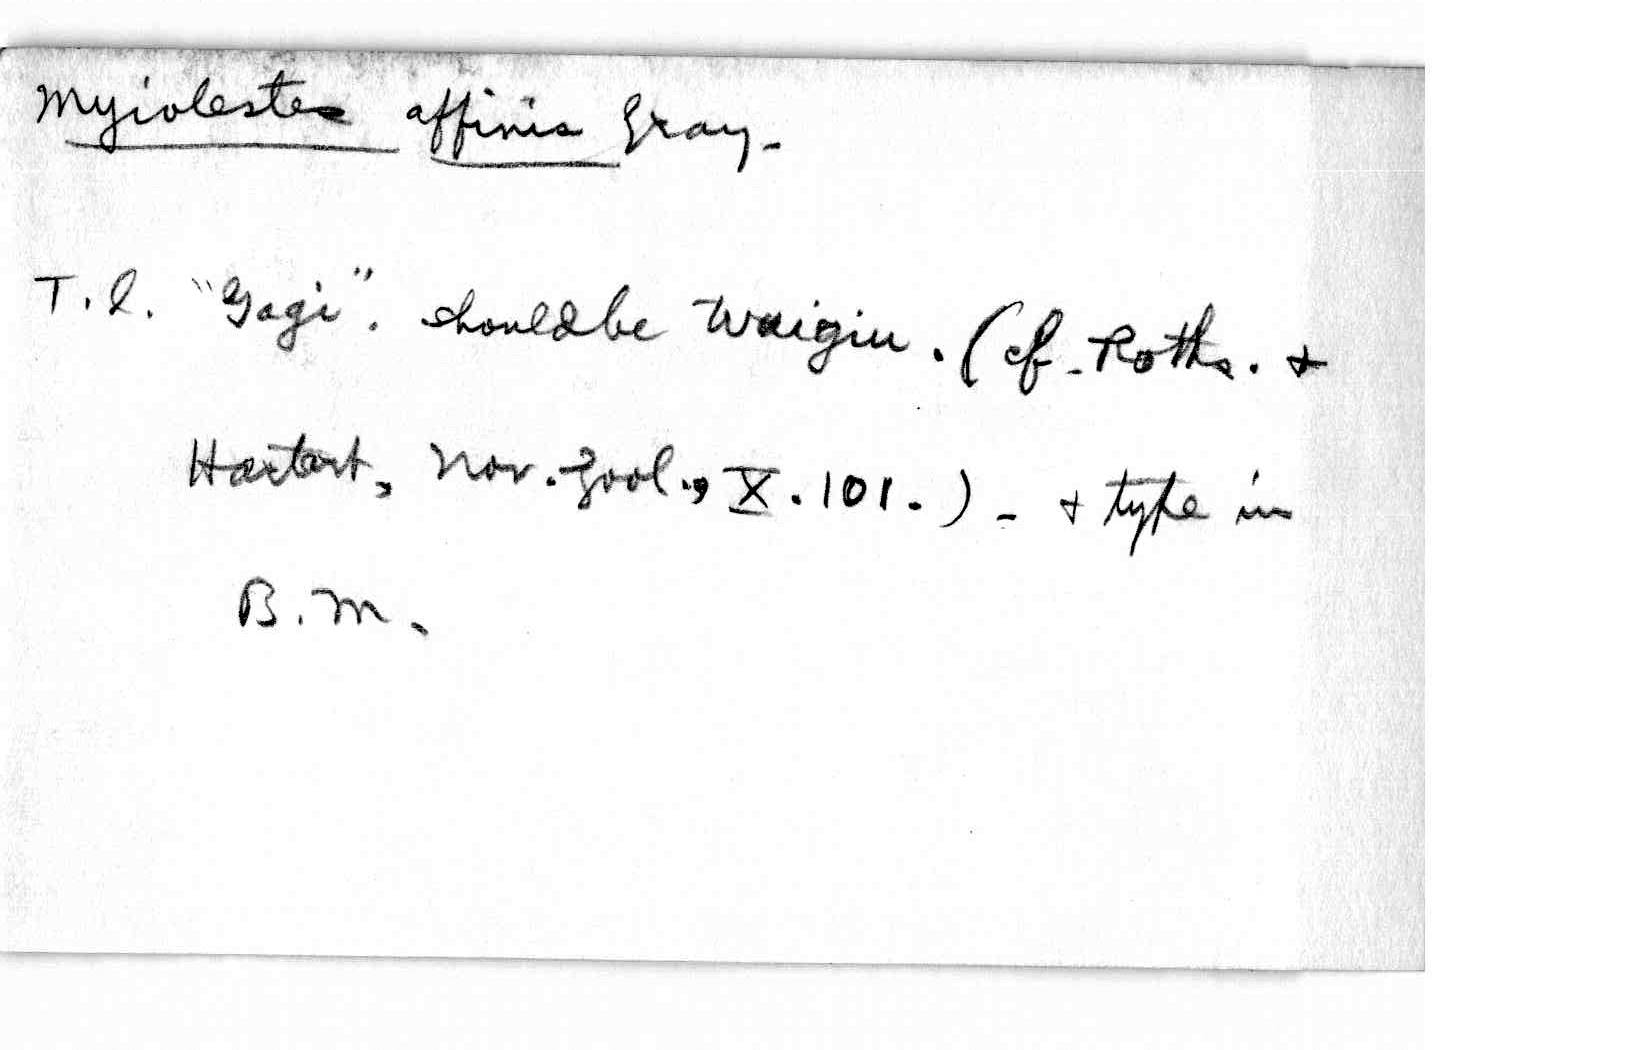 Myiolestes affinis Gray.
T.l. "Gagi". should be Waigiu. (cf. Roths. &
Hartert, Nov. Zool., X. 101.) - & type in
B.M.